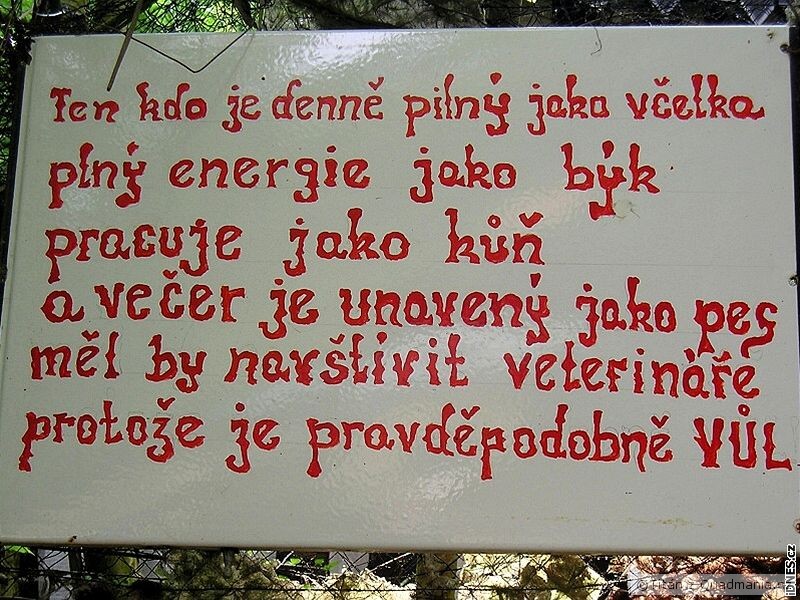 Ten kdo je denně pilný jako včelka
plný energie jako býk
pracuje jako kůň
a večer je unavený jako pes
měl by navštívit veterináře
protože je pravděpodobně VŮL
iDNES.cz